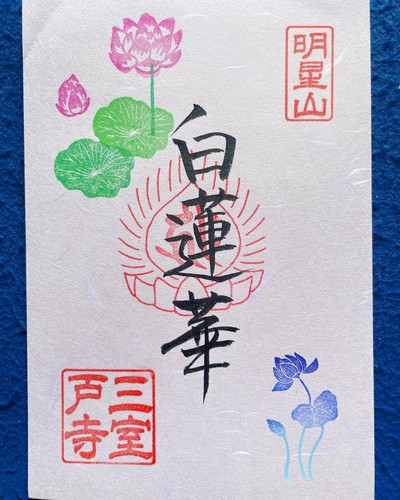 明星山
白蓮華
三室
戸寺